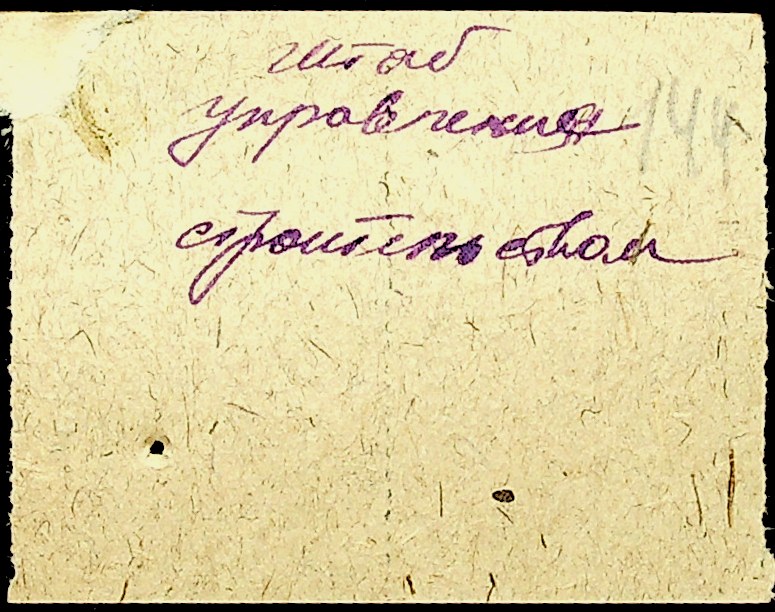 Штаб
управления 144
строительством